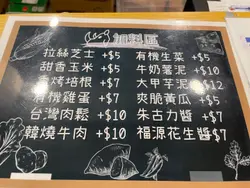 加料區
拉絲芝士 +$5 有機生菜 +$5
甜香玉米 +$5 牛奶薯泥 +$10
香烤培根 +$7 大甲芋泥 +$12
有機雞蛋 +$7 爽脆黃瓜 +$5
台灣肉鬆 +$10 朱古力醬 +$7
韓燒牛肉 +$10 福源花生醬 $7